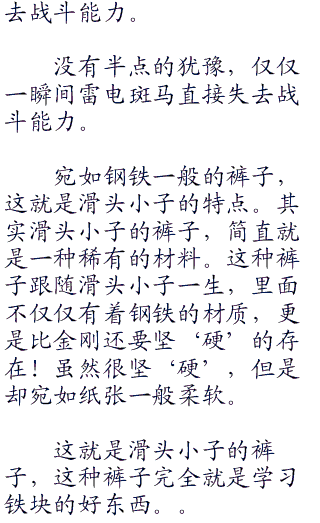 去战斗能力。
没有半点的犹豫，仅仅
一瞬间雷电斑马直接失去战
斗能力。
宛如钢铁一般的裤子，
这就是滑头小子的特点。其
实滑头小子的裤子，简直就
是一种稀有的材料。这种裤
子跟随滑头小子一生，里面
不仅仅有着钢铁的材质，更
是比金刚还要坚‘硬’的存
在！虽然很坚‘硬’，但是
却宛如纸张一般柔软。
这就是滑头小子的裤
子，这种裤子完全就是学习
铁块的好东西。。